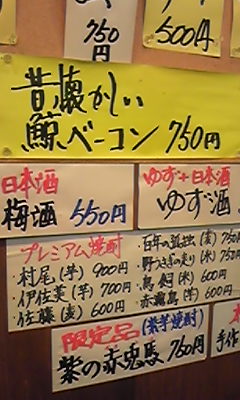 750
円
500円
昔懐かしい
鯨ベーコン 750円
日本酒
梅酒 550円
ゆず+日本酒
ゆず酒
プレミアム焼酎
・村尾(芋) 900円
・伊佐美(芋) 700円
・佐藤(麦) 600円
・百年の孤独(麦) 750
・野うさぎの走り(米) 600円
・鳥飼(米) 600円
・赤霧島(芋) 600円
限定品(紫芋焼酎)
紫の赤兎馬 760円
手作